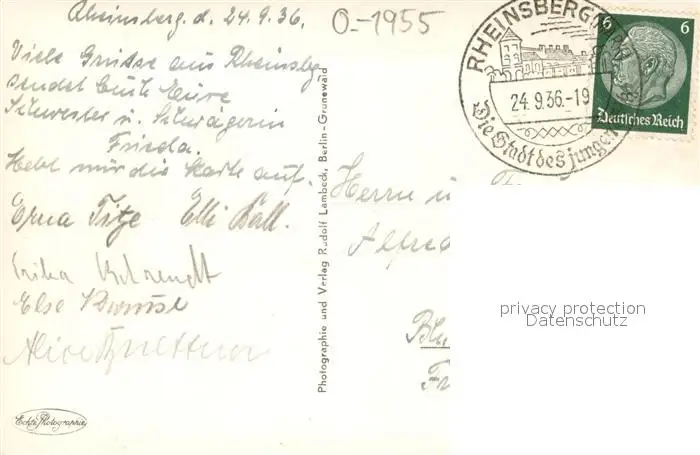 Rheinsberg. d. 24.9.36.
O-1955
Viele Grüße aus Rheinsbg
sendet Euch Eure
Schwester u. Schwägerin
Frieda.
Hebt mir die Karte auf.
Erna Titze Elli Ball.
Erika Behrendt
Else
Alice
Echte Photographie
Photographie und Verlag Rudolf Lambeck, Berlin-Grunewald
RHEINSBERG
24.9.36.-19
Die Stadt des jungen
6 6
Deutsches Reich
Herrn u.
Alfred
privacy protection
Datenschutz